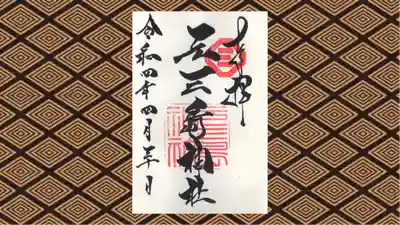 奉拝
元三島神社
令和四年四月 日